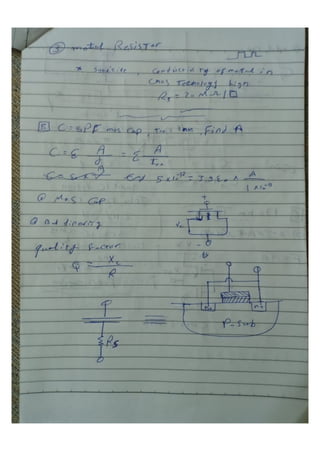 ③ metal Resistor
* , conductivity of metal in
CMOS Technology high
Rs = 20 mΩ/□
E C = 5PF mos cap, tox = 1nm, find A
C = ε A/d = ε A/tox
5×10⁻¹² = 3.9 ε₀ × A/1×10⁻⁹
@ MOS Cap
@ Bad linearity
quality factor
Q = Xc/R
Rs
P-sub